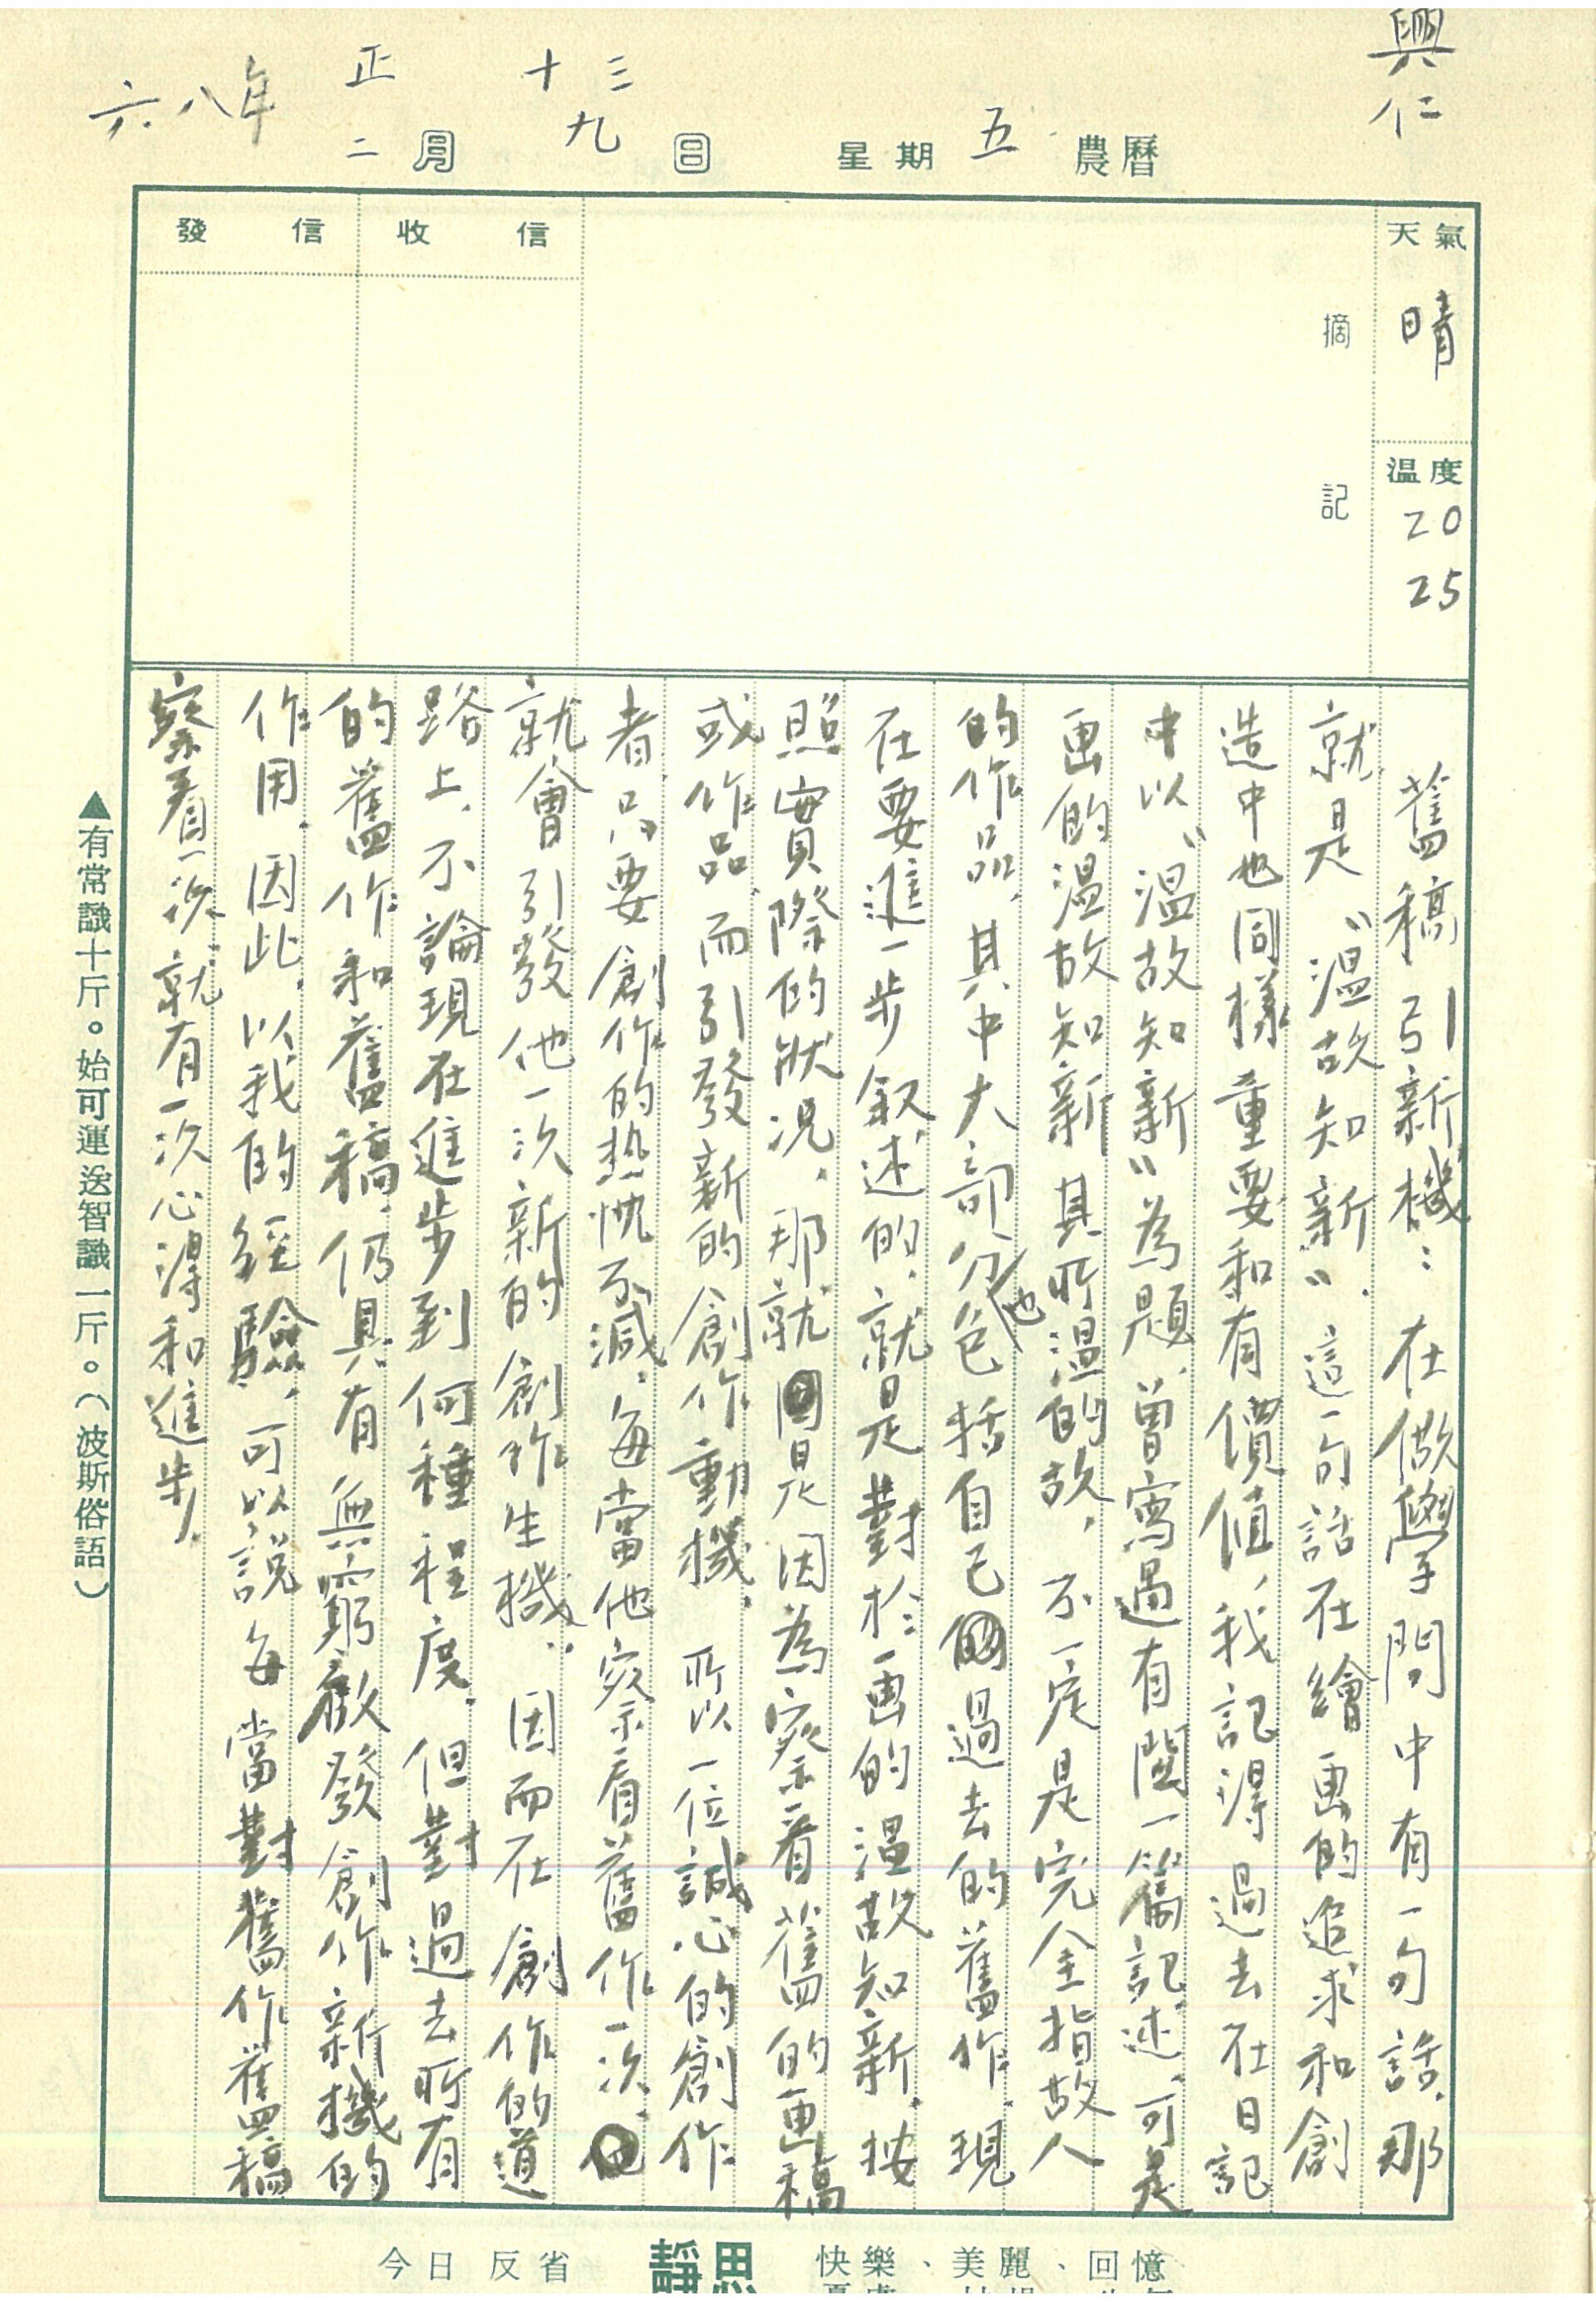 興仁
六八年 正 十三
二月 九日 星期五 農曆
天氣 晴
溫度 20 25
摘記
收信
發信
舊稿引新機：在做學問中有一句話，那
就是〝溫故知新〞，這一句話在繪畫的追求和創
造中也同樣重要和有價值，我記得過去在日記
中以〝溫故知新〞為題，曾寫過有関一篇記述，可是
畫的溫故知新其所溫的故，不一定是完全指故人
的作品，其中大部份也包括自己過去的舊作，現
在要進一步叙述的，就是對於畫的溫故知新，按
照實際的狀況，那就是因為察看舊的畫稿
或作品而引發新的創作動機，所以一位誠心的創作
者，只要創作的热忱不減，每當他察看舊作一次，
就會引發他一次新的創作生機，因而在創作的道
路上，不論現在進步到何種程度，但對過去所有
的舊作和舊稿，仍具有無窮啟發創作新機的
作用，因此，以我的經驗，可以說每當對舊作舊稿
察看一次，就有一次心得和進步，
▲有常識十斤。始可運送智識一斤。（波斯俗語）
今日反省 靜思 快樂、美麗、回憶